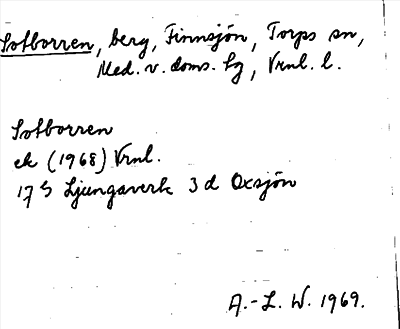 Sotborren, berg, Finnsjön, Torps sn,
Med. v. doms. hg, Vrnl. l.
Sotborren
ek (1968) Vrnl.
17 S Ljungaverk 3 d Oxsjön
A.-L. W. 1969.